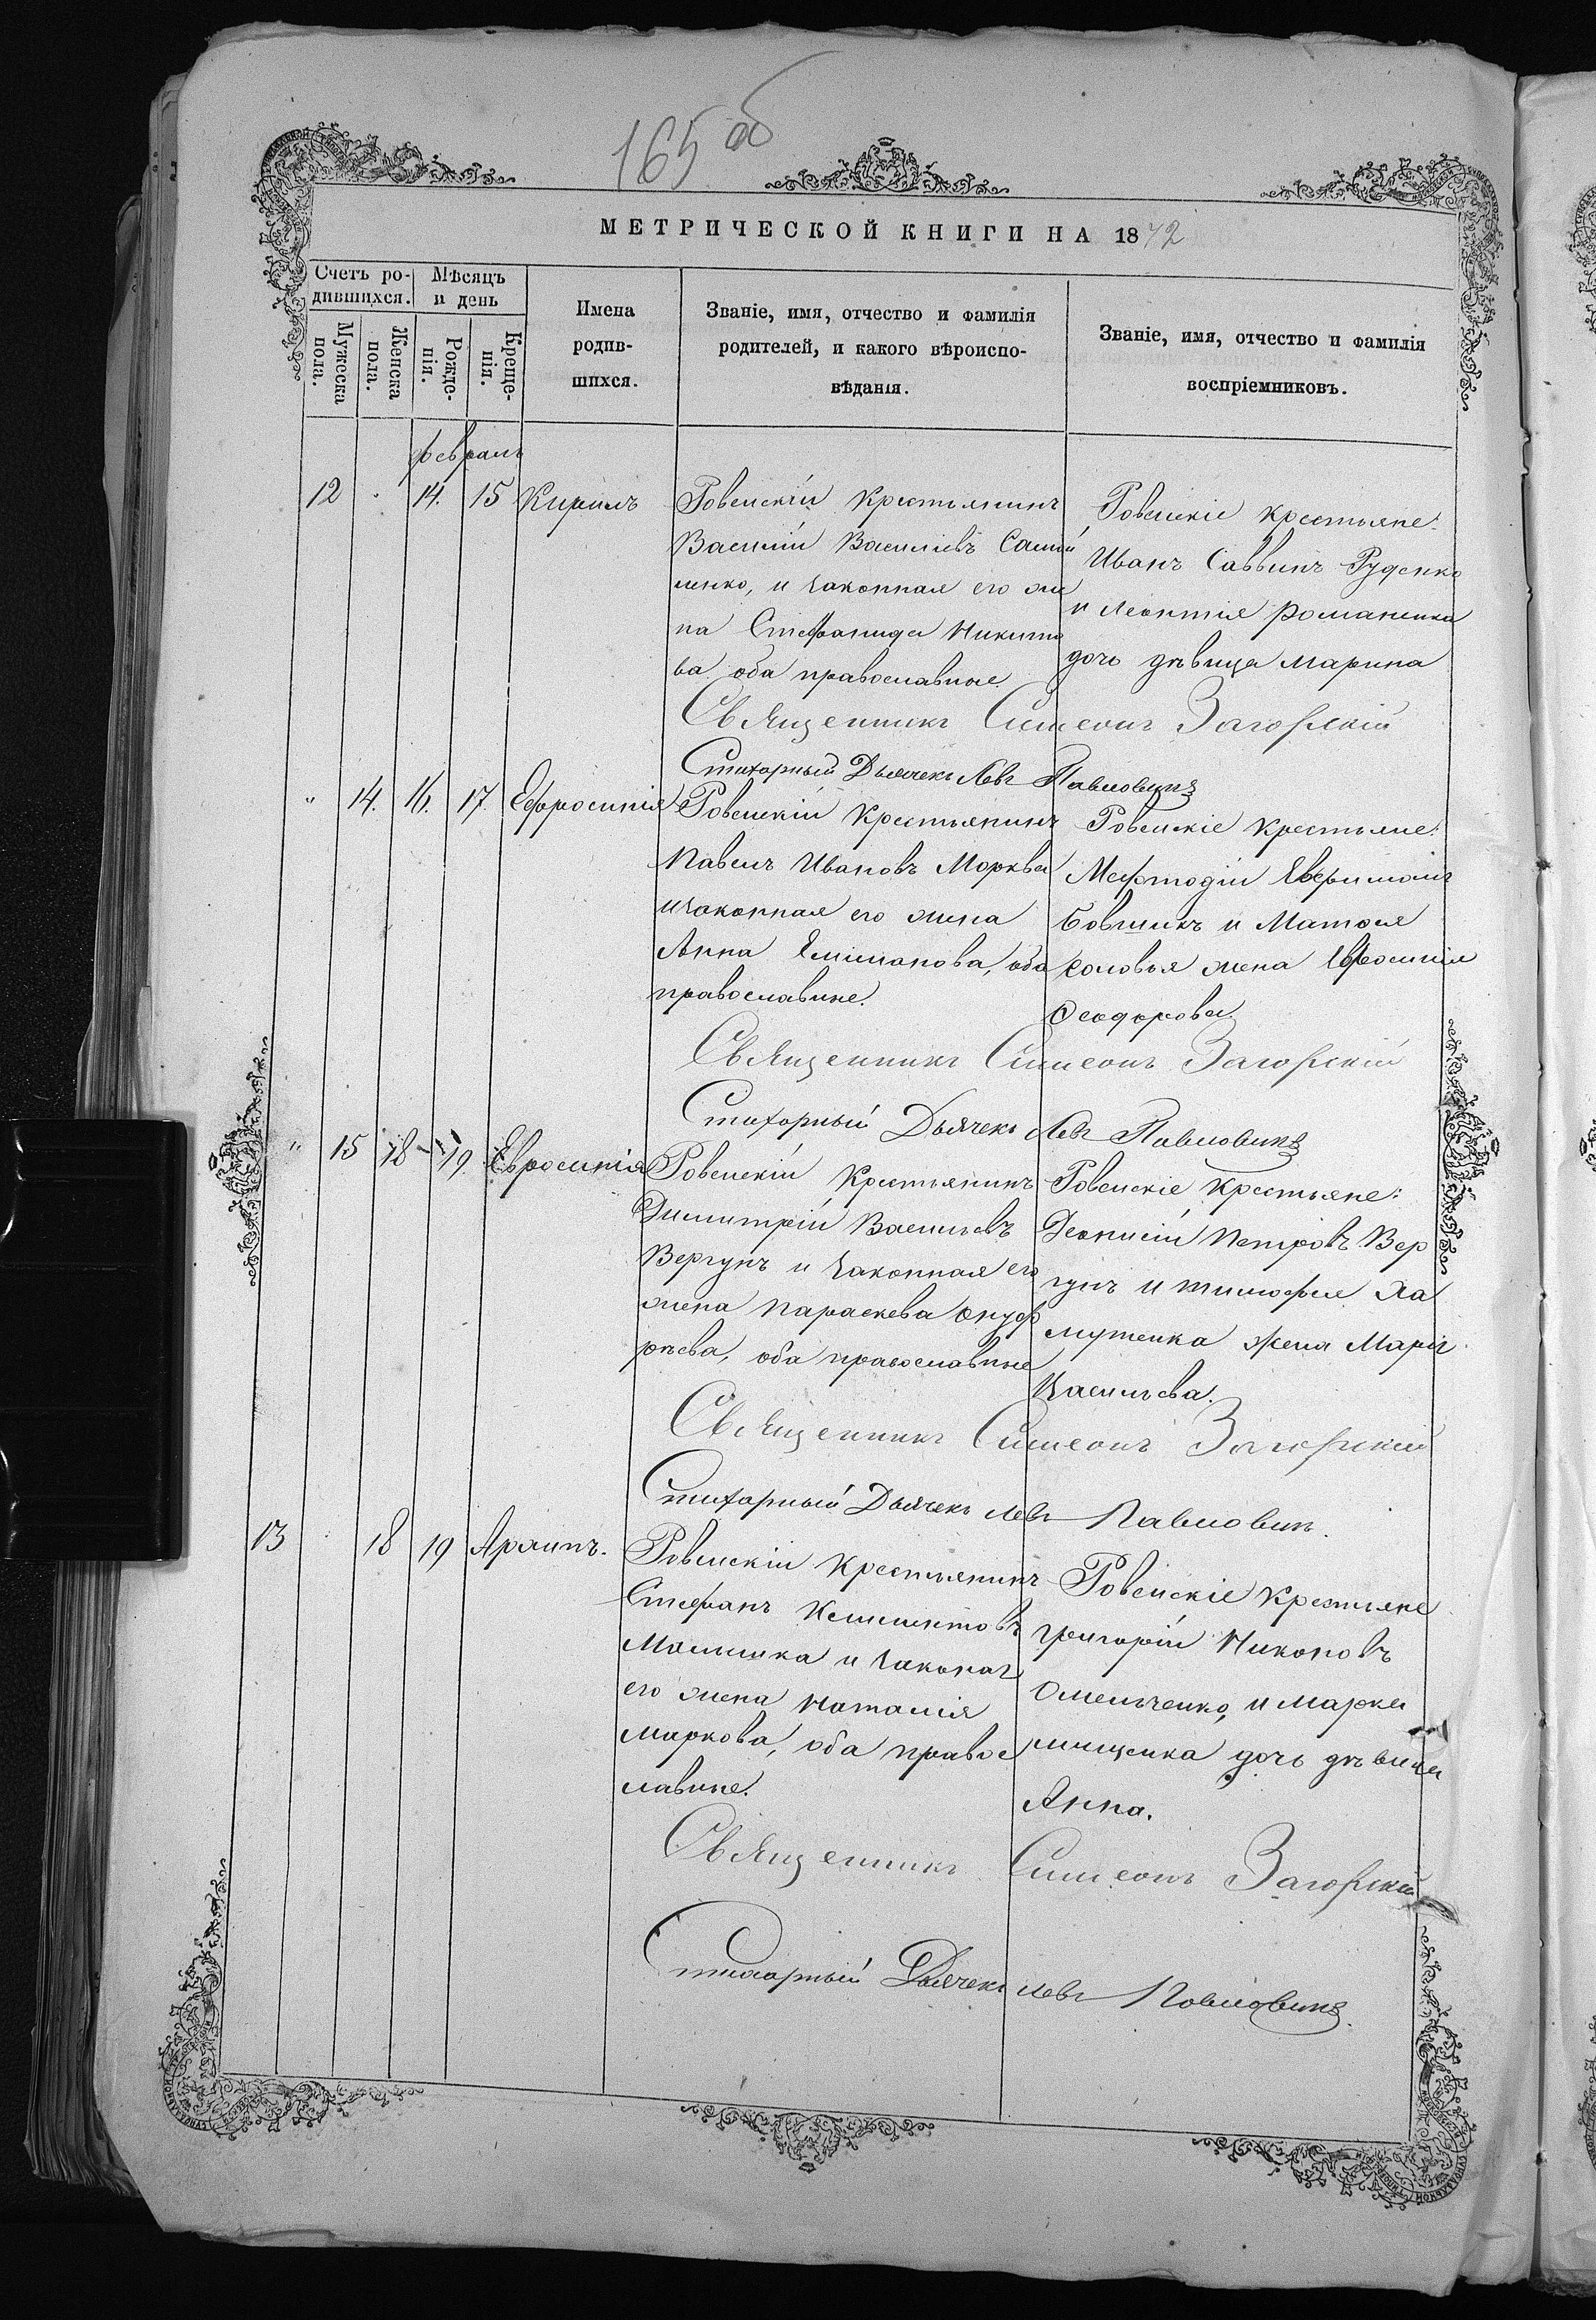 165 об
МЕТРИЧЕСКОЙ КНИГИ НА 1872
Счетъ ро-
дившихся.
Мужеска
пола.
Женска
пола.
Мѣсяцъ
и день
Рожде-
нія.
Креще-
нія.
Имена
родив-
шихся.
Званіе, имя, отчество и фамилія
родителей, и какого вѣроиспо-
вѣданія.
Званіе, имя, отчество и фамилія
воспріемниковъ.
февраль
12 14. 15 Кирилъ
Ровенскій крестьянинъ
Василій Василіевъ Самой
ленко, и законная его же
на Стефанида Никито
ва оба православные.
Ровенскіе крестьяне:
Иванъ Саввинъ Руденко
и Леонтія Романенка
дочь дѣвица Марина
Священникъ Симеонъ Загорскій
Стихарный Дьячекъ Левъ Павловичъ
" 14. 16. 17 Ефросинія
Ровенскій крестьянинъ
Павелъ Ивановъ Морква
и законная его жена
Анна Емиліанова, оба
православные.
Ровенскіе крестьяне:
Мефтодій
и Матвея
Соловья жена Евфросинія
Феодорова.
Священникъ Симеонъ Загорскій
Стихарный Дьячекъ Левъ Павловичъ
" 15 18 19 Евросинія
Ровенскій крестьянинъ
Димитрій Васильевъ
Вергунъ и законная его
жена Параскева Онуф
ріева, оба православные
Ровенскіе крестьяне:
Деонисій Петровъ Вер
гунъ и Тимофея Ха
мутенка жена Марія
Васильева.
Священникъ Симеонъ Загорскій
Стихарный Дьячекъ Левъ Павловичъ.
13 18 19 Архипъ.
Ровенскій крестьянинъ
Стефанъ Климентовъ
и законая
его жена Наталія
Маркова, оба правос
лавные.
Ровенскіе крестьяне
Григорій Никоновъ
Омельченко, и Марка
дочь дѣвица
Анна.
Священникъ Симеонъ Загорскій
Стихарный Дьячекъ Левъ Павловичъ.